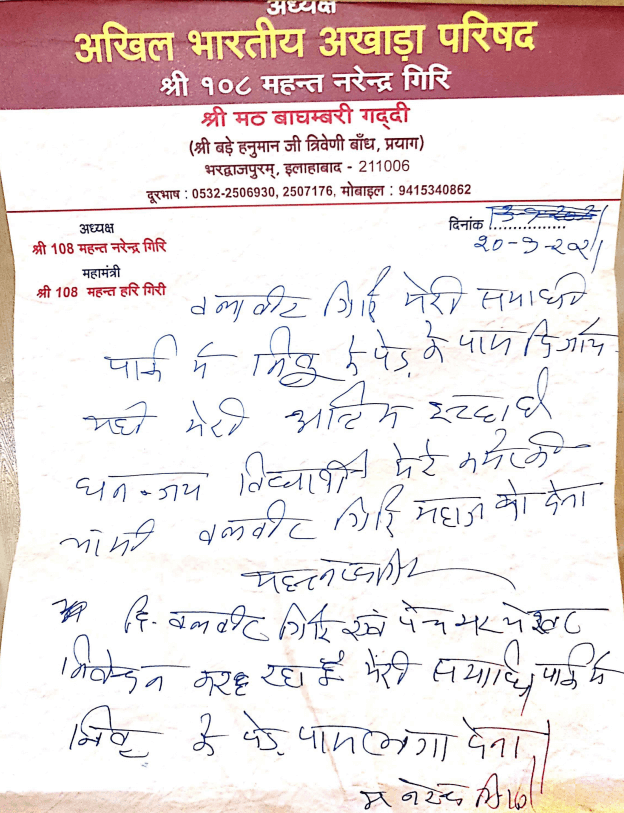 अध्यक्ष
अखिल भारतीय अखाड़ा परिषद
श्री १०८ महन्त नरेन्द्र गिरि
श्री मठ बाघम्बरी गद्दी
(श्री बड़े हनुमान जी त्रिवेणी बाँध, प्रयाग)
भरद्वाजपुरम्, इलाहाबाद - 211006
दूरभाष : 0532-2506930, 2507176, मोबाइल : 9415340862
अध्यक्ष
श्री 108 महन्त नरेन्द्र गिरि
महामंत्री
श्री 108 महन्त हरि गिरी
दिनांक
२०-९-२०२१
बलवीर गिरि मेरी समाधी
पार्क में निबू के पेड़ के पास दि जाय
यही मेरी अंतिम इच्छा है
धनन्जय विद्यार्थी मेरे कमरे की
चाभी बलवीर गिरि महाज को देना
बलवीर गिरि एवं पंच परमेश्वर
निवेदन कर रहा हूँ मेरी समाधि पार्क में
निबू के पेड़ पास लगा देना
म नरेन्द्र गिरि